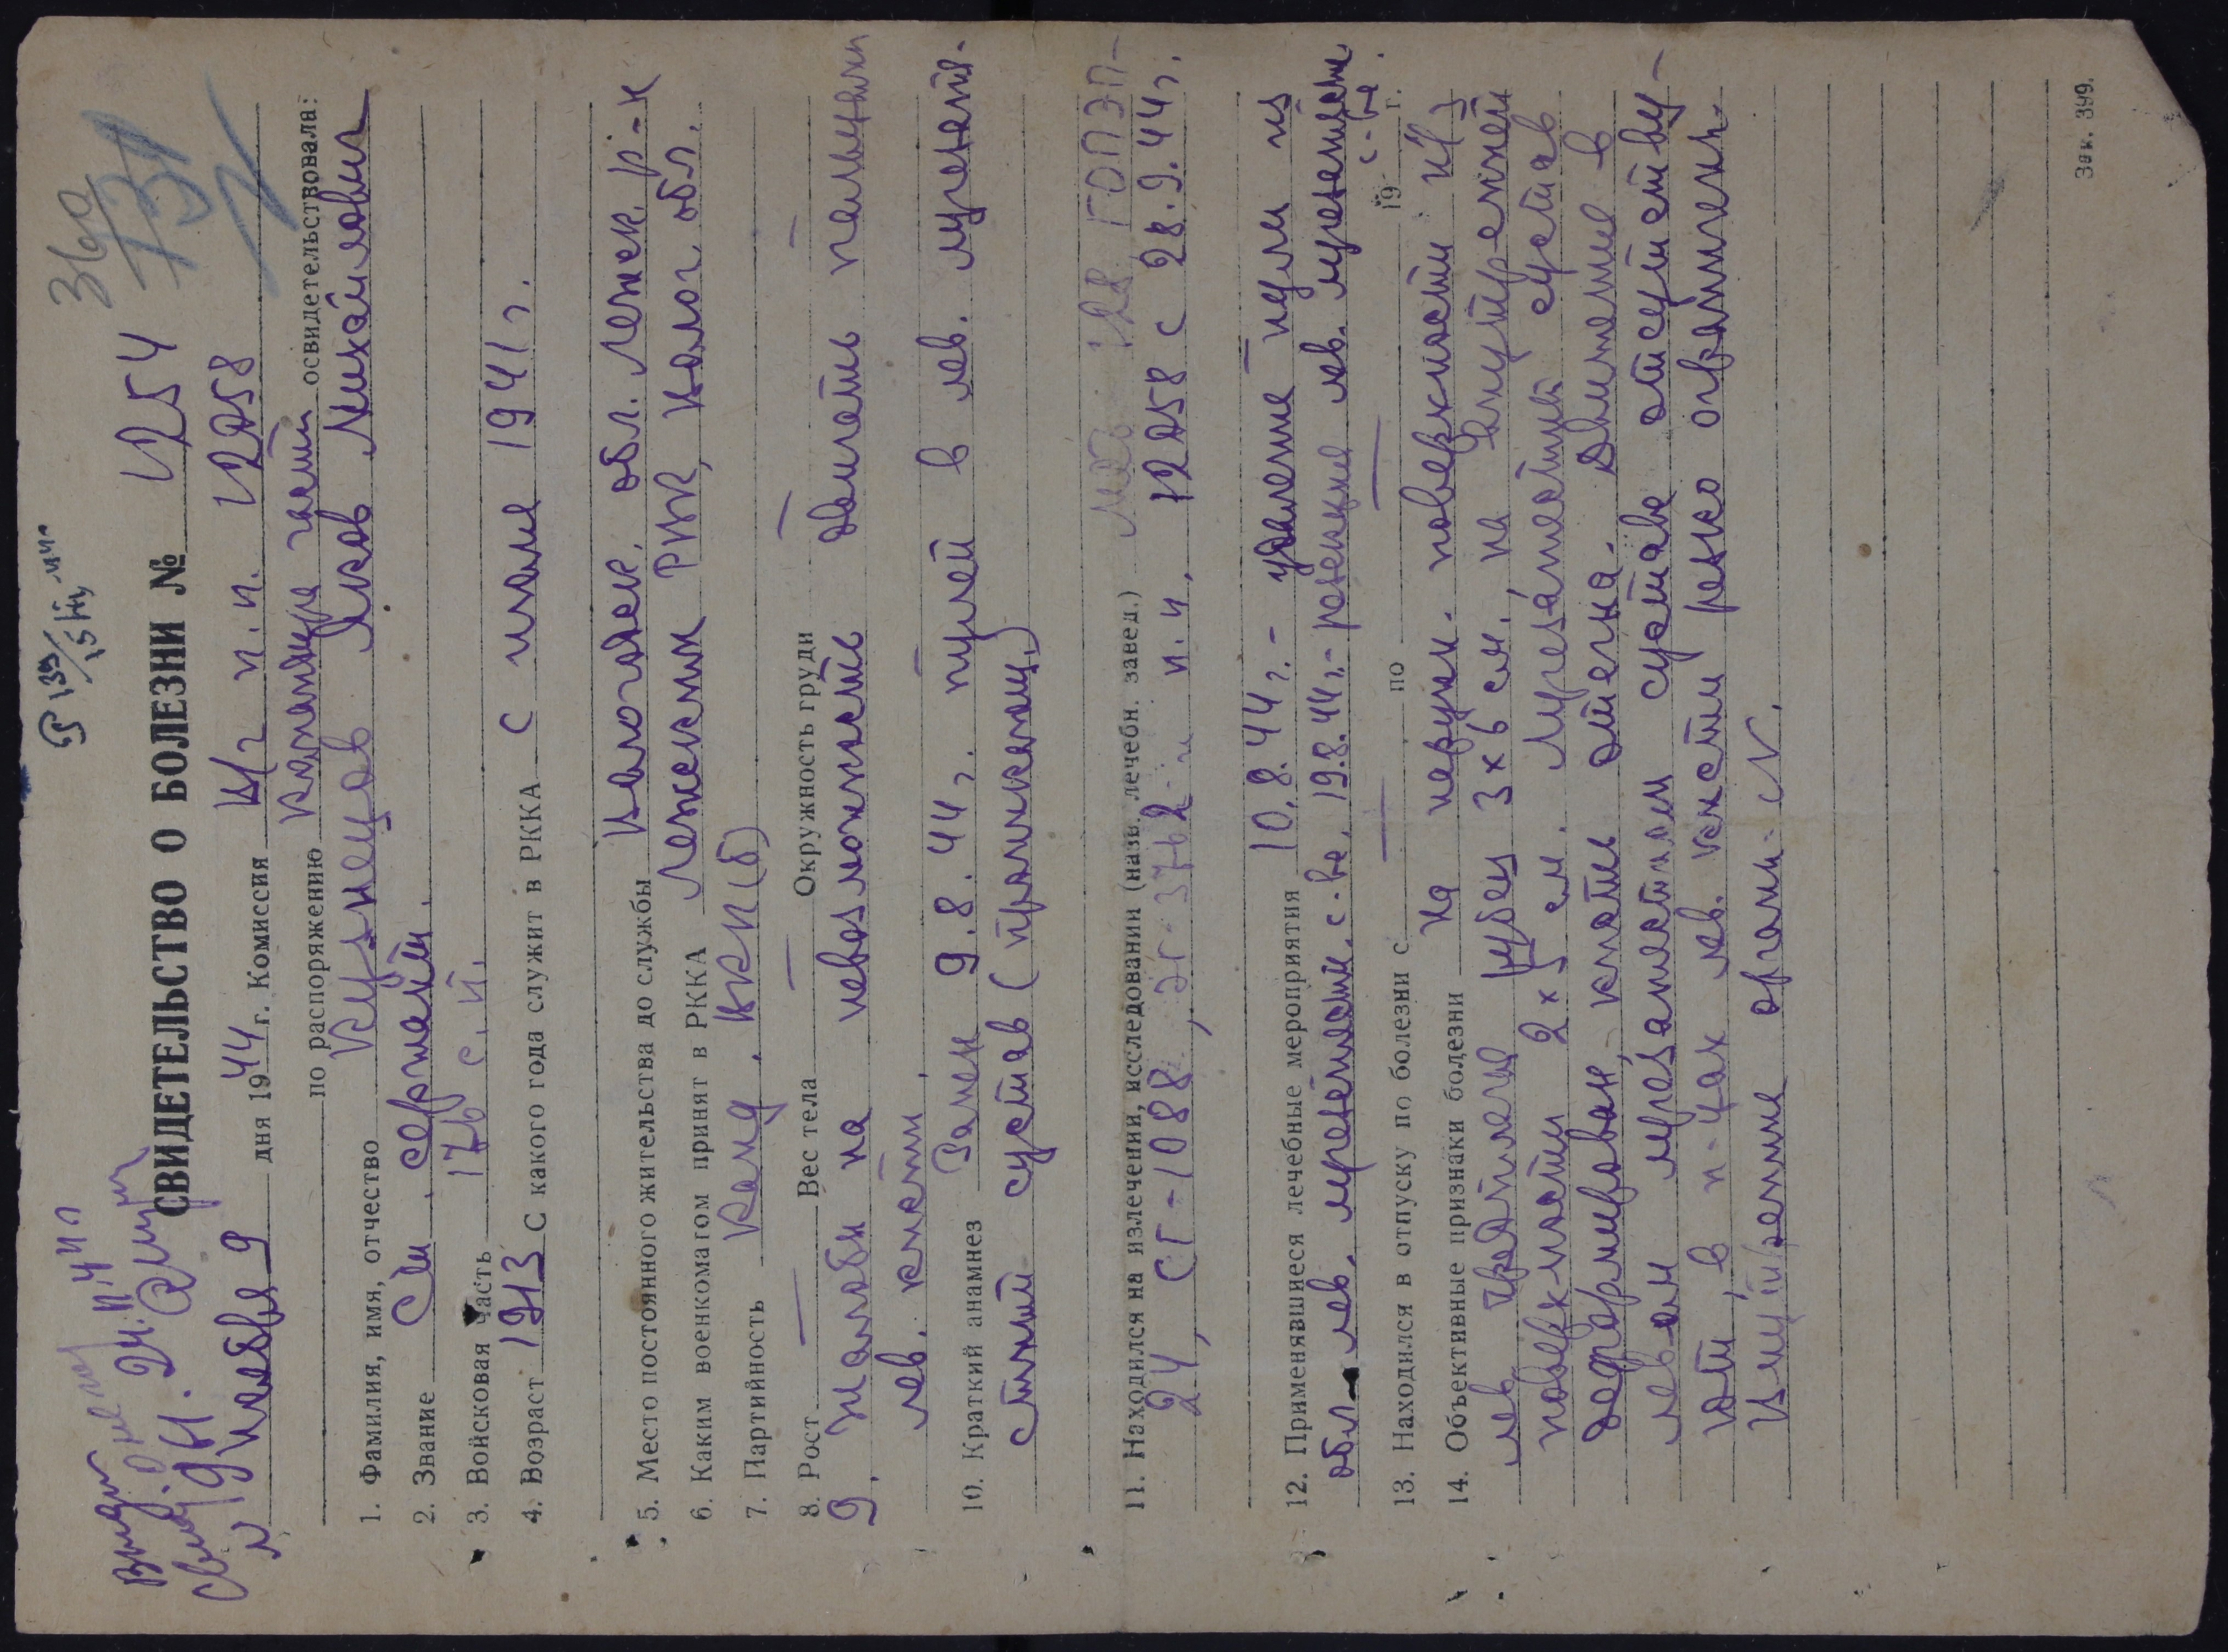 360
СВИДЕТЕЛЬСТВО О БОЛЕЗНИ № 1254
„9“ Ноября 9 дня 1944 г. Комиссия п.п. 12058
по распоряжению командира части освидетельствовала:
1. Фамилия, имя, отчество Кузнецов Яков Михайлович
2. Звание Ст. сержант.
3. Войсковая часть 176 с.п.
4. Возраст 1913 С какого года служит в РККА с июля 1941 г.
5. Место постоянного жительства до службы Вологодск. обл. Лежск. р-н
6. Каким военкомагом принят в РККА Лежским РВК, Волог. обл.
7. Партийность Канд. ВКП(б)
8. Рост — Вес тела — Окружность груди —
9. Жалобы на невозможность двигать пальцами
лев. кисти.
10. Краткий анамнез Ранен 9.8.44 г. пулей в лев. лучезапя-
стный сустав (проникающ.)
11. Находился на излечении, исследовании (назв. лечебн. завед.) ГОПЭП-
24, СГ-1088, ЭГ-3762 и п.п. 12058 с 28.9.44 г.
12. Применявшиеся лечебные мероприятия 10.8.44 г. - удаление пули из
обл. лев. лучезапястн. с-ва. 19.8.44 г. - резекция лев. лучезапястн.
с-ва.
13. Находился в отпуску по болезни с — по — 19 г.
14. Объективные признаки болезни На наружн. поверхности н/3
лев. предплечья рубец 3 х 6 см., на внутренней
поверхности 2 х 5 см. Лучезапястный сустав
деформирован, кисть отечна. Движение в
левом лучезапястном суставе отсутству-
ют, в п-цах лев. кисти резко ограничены.
Внутренние органы - N.
Зак. 399.